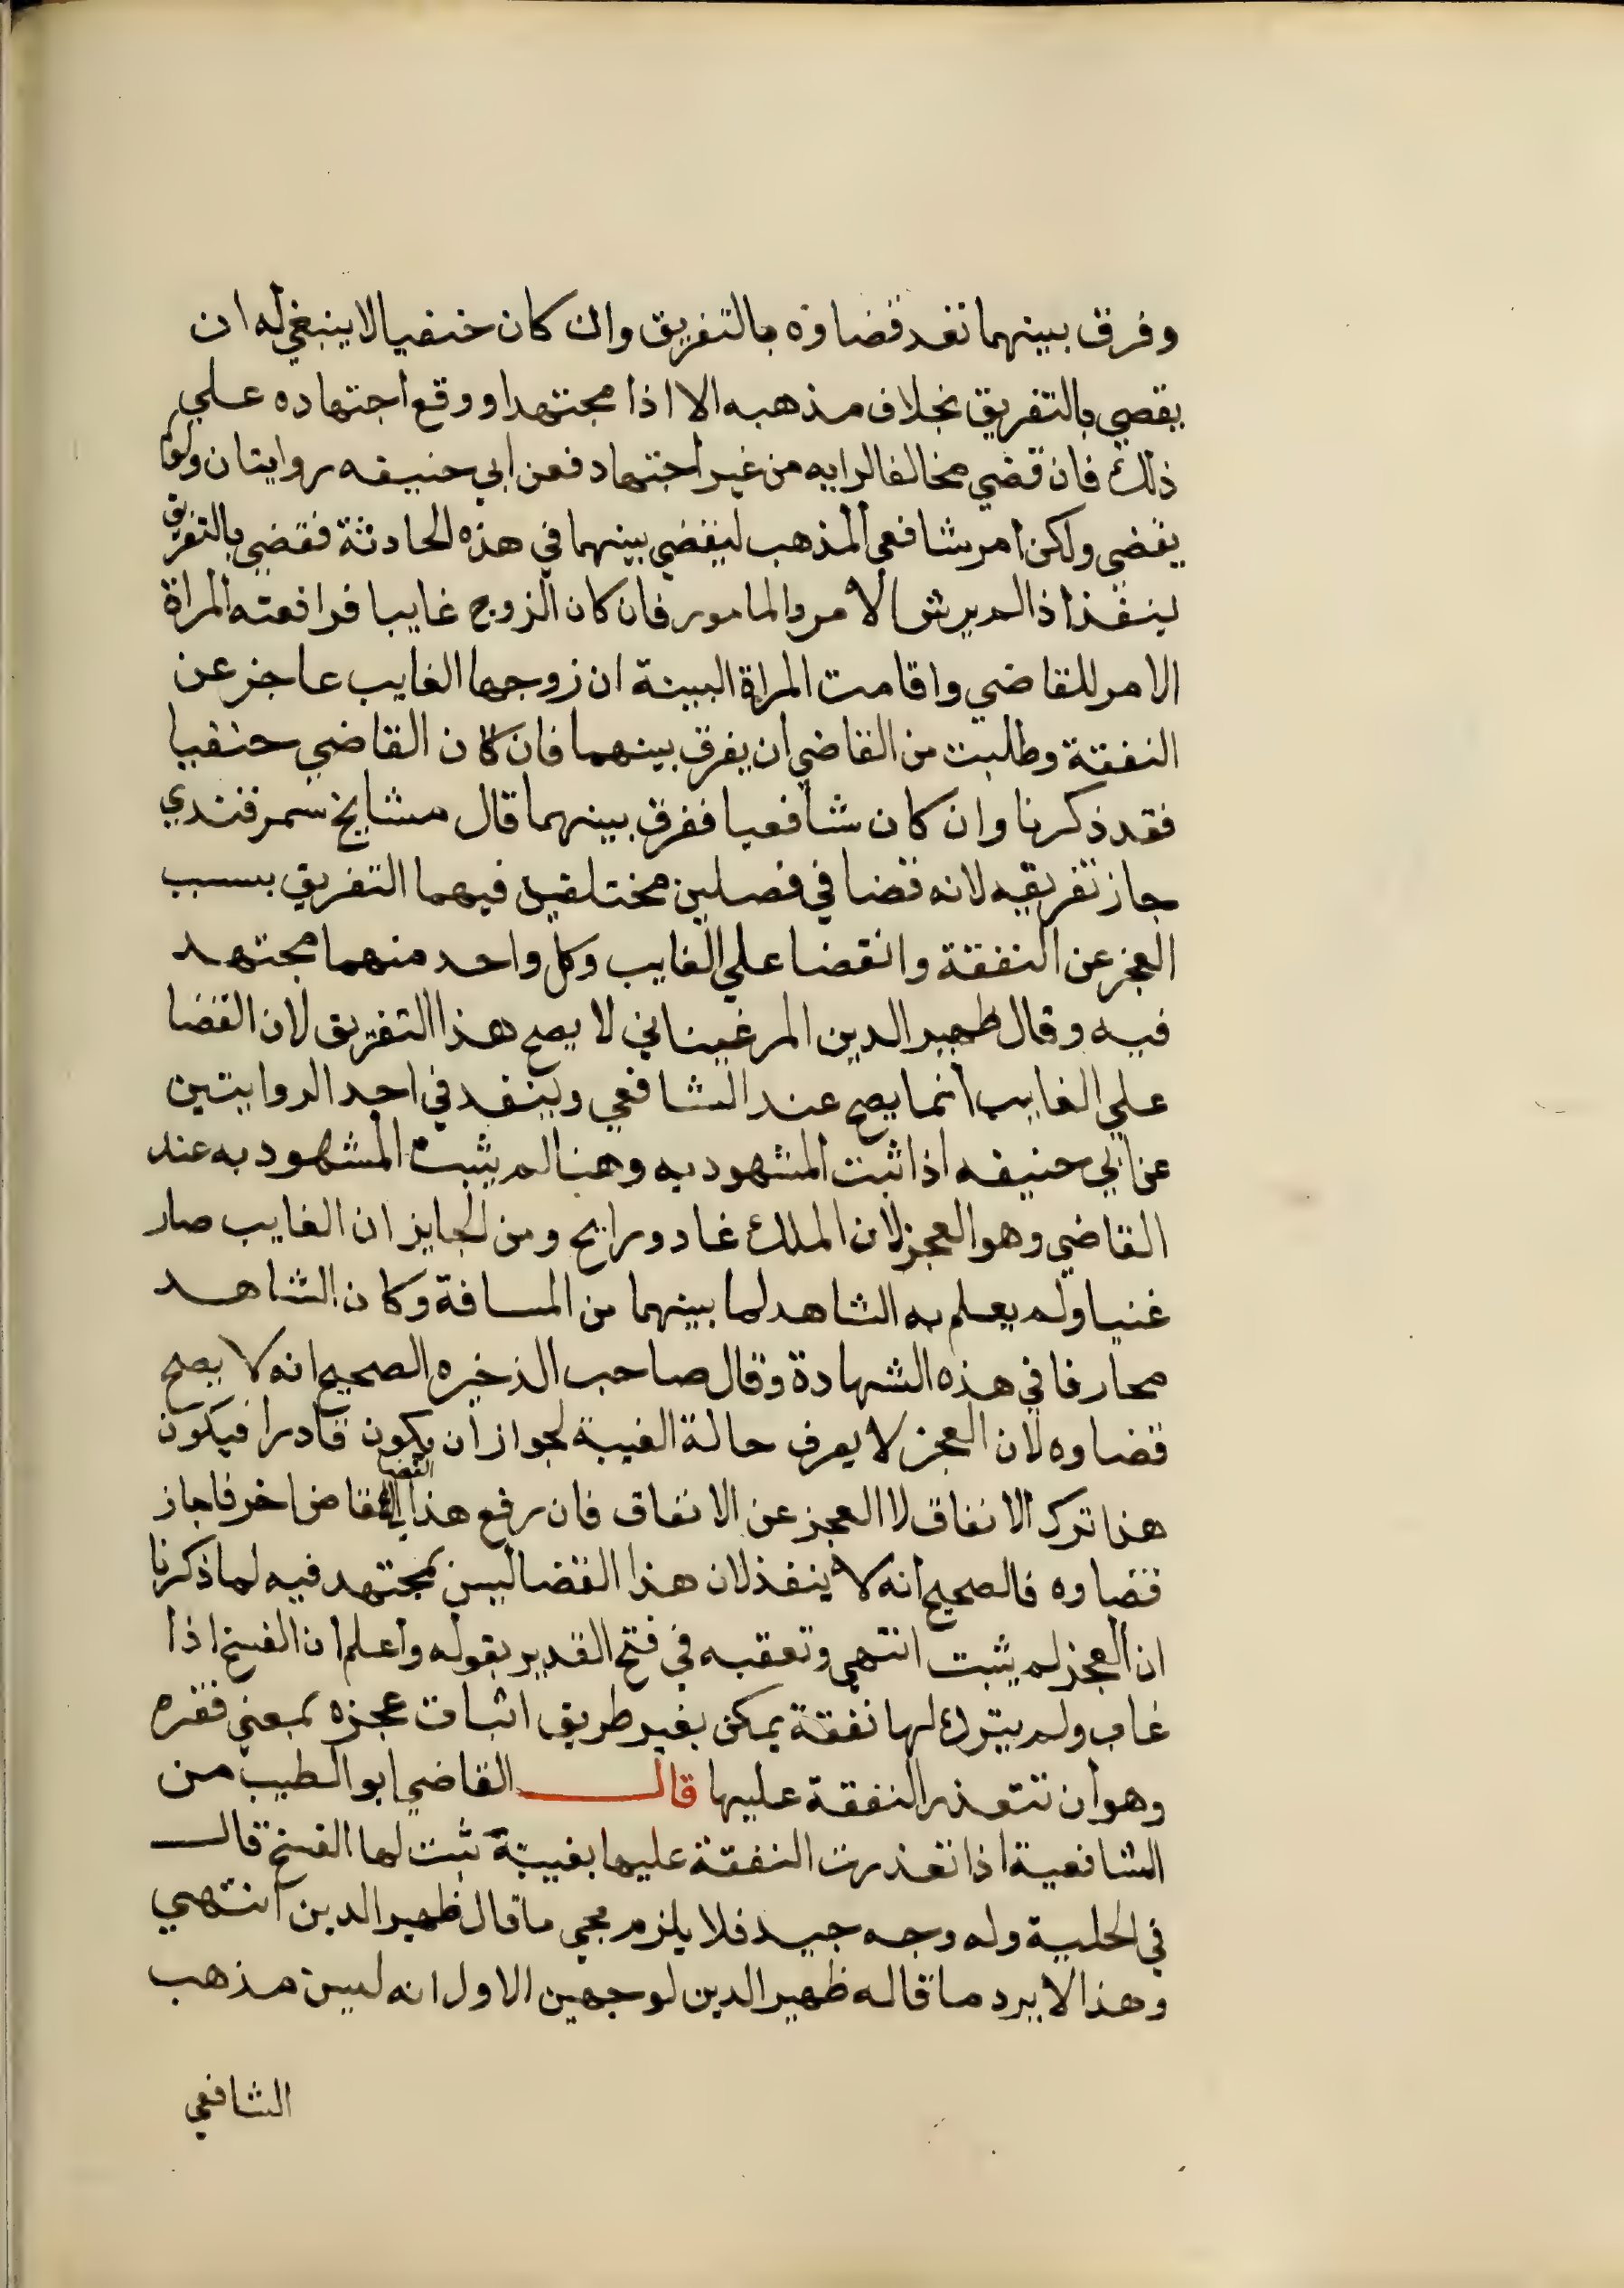 وفرق بينهما نفد قضاوه بالتفريق وان كان حنفيا لا ينبغي له ان
يقضي بالتفريق بخلاف مذهبه الا اذا مجتهدا ووقع اجتهاده علي
ذلك فان قضي مخالفا لرايه من غير اجتهاد فعن ابي حنيفه روايتان ولو لم
يقضي ولكن امر شافعي المذهب ليقضي بينهما في هذه الحادثة فقضي بالتفريق
ينفذ اذا لم يرش الامر والمامور فان كان الزوج غايبا فرافعته المراة
الامر للقاضي واقامت المراة البينة ان زوجها الغايب عاجز عن
النفقة وطلبت من القاضي ان يفرق بينهما فان كان القاضي حنفيا
فقد ذكرنا وان كان شافعيا ففرق بينهما قال مشايخ سمرقندي
جاز تفريقه لانه قضا في فصلين مختلفين فيهما التفريق بسبب
العجز عن النفقة وانقضا علي الغايب وكل واحد منهما مجتهد
فيه وقال ظهير الدين المرغيناني لا يصح هذا التفريق لان القضا
علي الغايب انما يصح عند الشافعي وينفد في احد الروايتين
عن ابي حنيفه اذا ثبت المشهود به وهنا لم يثبت المشهود به عند
القاضي وهو العجز لان الملك غاد ورايح ومن الجايز ان الغايب صار
غنيا ولم يعلم به الشاهد لما بينهما من المسافة وكان الشاهد
محارفا في هذه الشهادة وقال صاحب الذخيره الصحيح انه لا يصح
قضاوه لان العجز لا يعرف حالة الغيبة لجواز ان يكون قادرا فيكون
هذا ترك الانفاق لا العجز عن الانفاق فان رفع هذا القضا الي قاض اخر فاجاز
قضاوه فالصحيح انه لا ينفذ لان هذا القضا ليس بمجتهد فيه لما ذكرنا
ان العجز لم يثبت انتهي وتعقبه في فتح القدير بقوله واعلم ان الفسخ اذا
غاب ولم يترك لها نفقة يمكن بغير طريق اثبات عجزه بمعني فقره
وهو ان تتعذر النفقة عليها قال القاضي ابو الطيب من
الشافعية اذا تعذرت النفقة عليها بغيبتة ثبت لها الفسخ قال
في الحلية وله وجه جيد فلا يلزم مجي ما قال ظهير الدين انتهي
وهذا لا يرد ما قاله ظهير الدين لوجهين الاول انه ليس مذهب
الشافعي